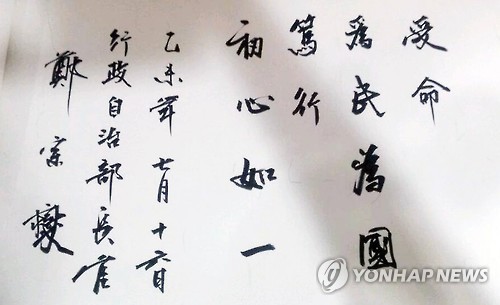 受命
為民為國
篤行
初心如一
乙未年 七月 十六日
行政自治部長官
鄭宗燮
YONHAP NEWS